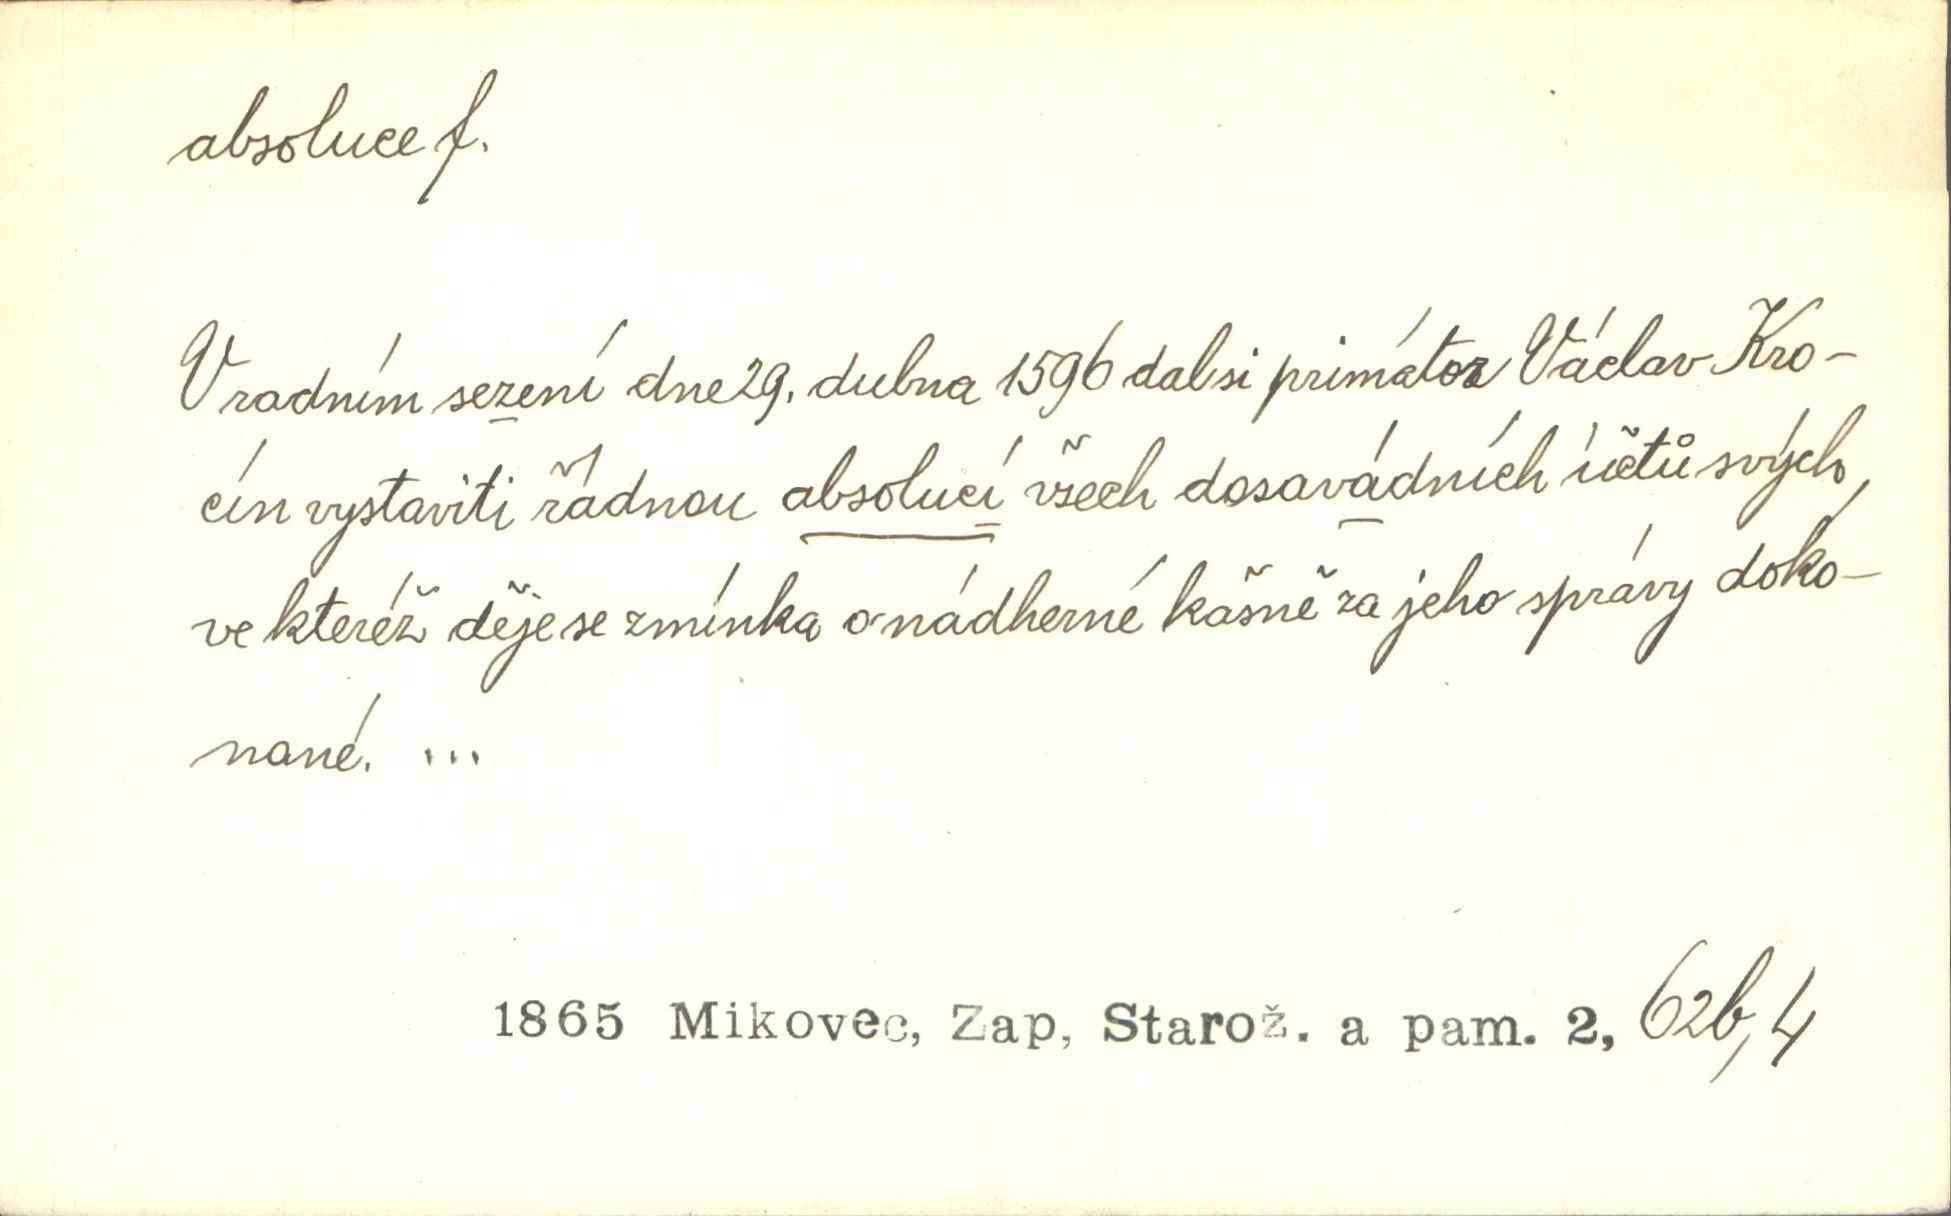 absoluce f.
V radním sezení dne 29. dubna 1596 dal si primátor Václav Kro-
cín vystaviti řádnou absolucí všech dosavádních účtů svých,
ve kteréž děje se zmínka o nádherné kašně za jeho správy doko-
nané. ...
1865 Mikovec, Zap, Starož. a pam. 2, 62b, 4